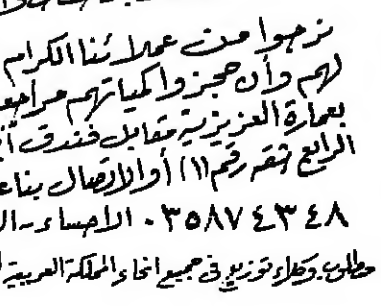 نرجوا من عملائنا الكرام
لهم وأن حجزوا كمياتهم مراجعـ
بعمارة العزيزية مقابل فندق
الرابع شقه رقم (١) أو الاتصال بنا عـ
٠٣٥٨٧٤٣٤٨ الاحساء - الـ
مطلوب وكلاء توزيع فى جميع انحاء المملكة العربية